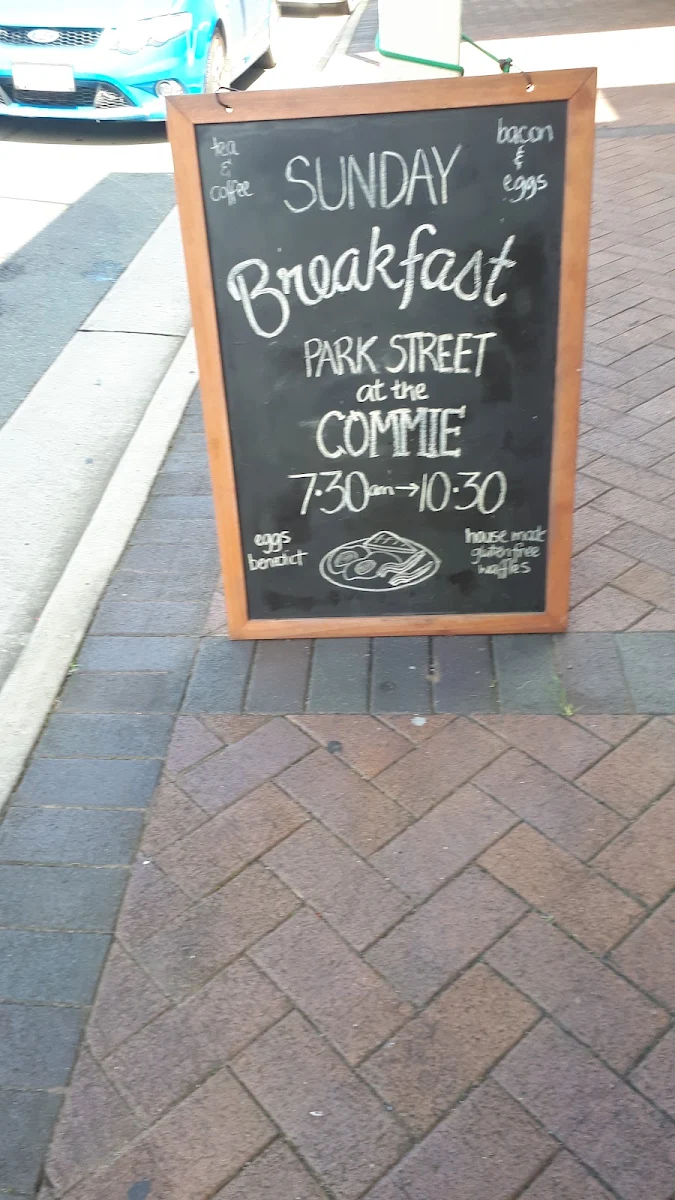 Ford
tea
&
coffee
bacon
&
eggs
SUNDAY
Breakfast
PARK STREET
at the
COMMIE
7.30am→10.30
eggs
benedict
house made
gluten free
waffles